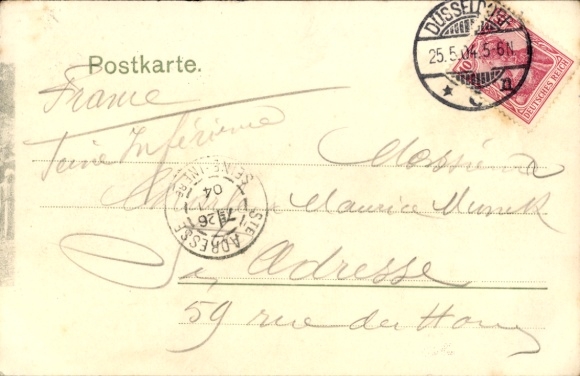 DÜSSELDORF
25.5.04.5-6N.
n
10
DEUTSCHES REICH
Postkarte.
France
Seine Inférieure
Monsieur
Maurice
STE ADRESSE
SEINE-INFRE
7E 26
04
Ste Adresse
59 rue du